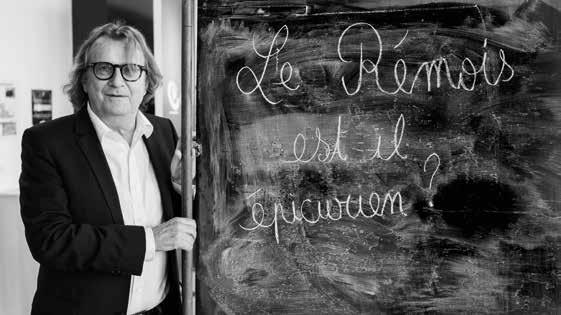 Le Rémois
est il
épicurien ?